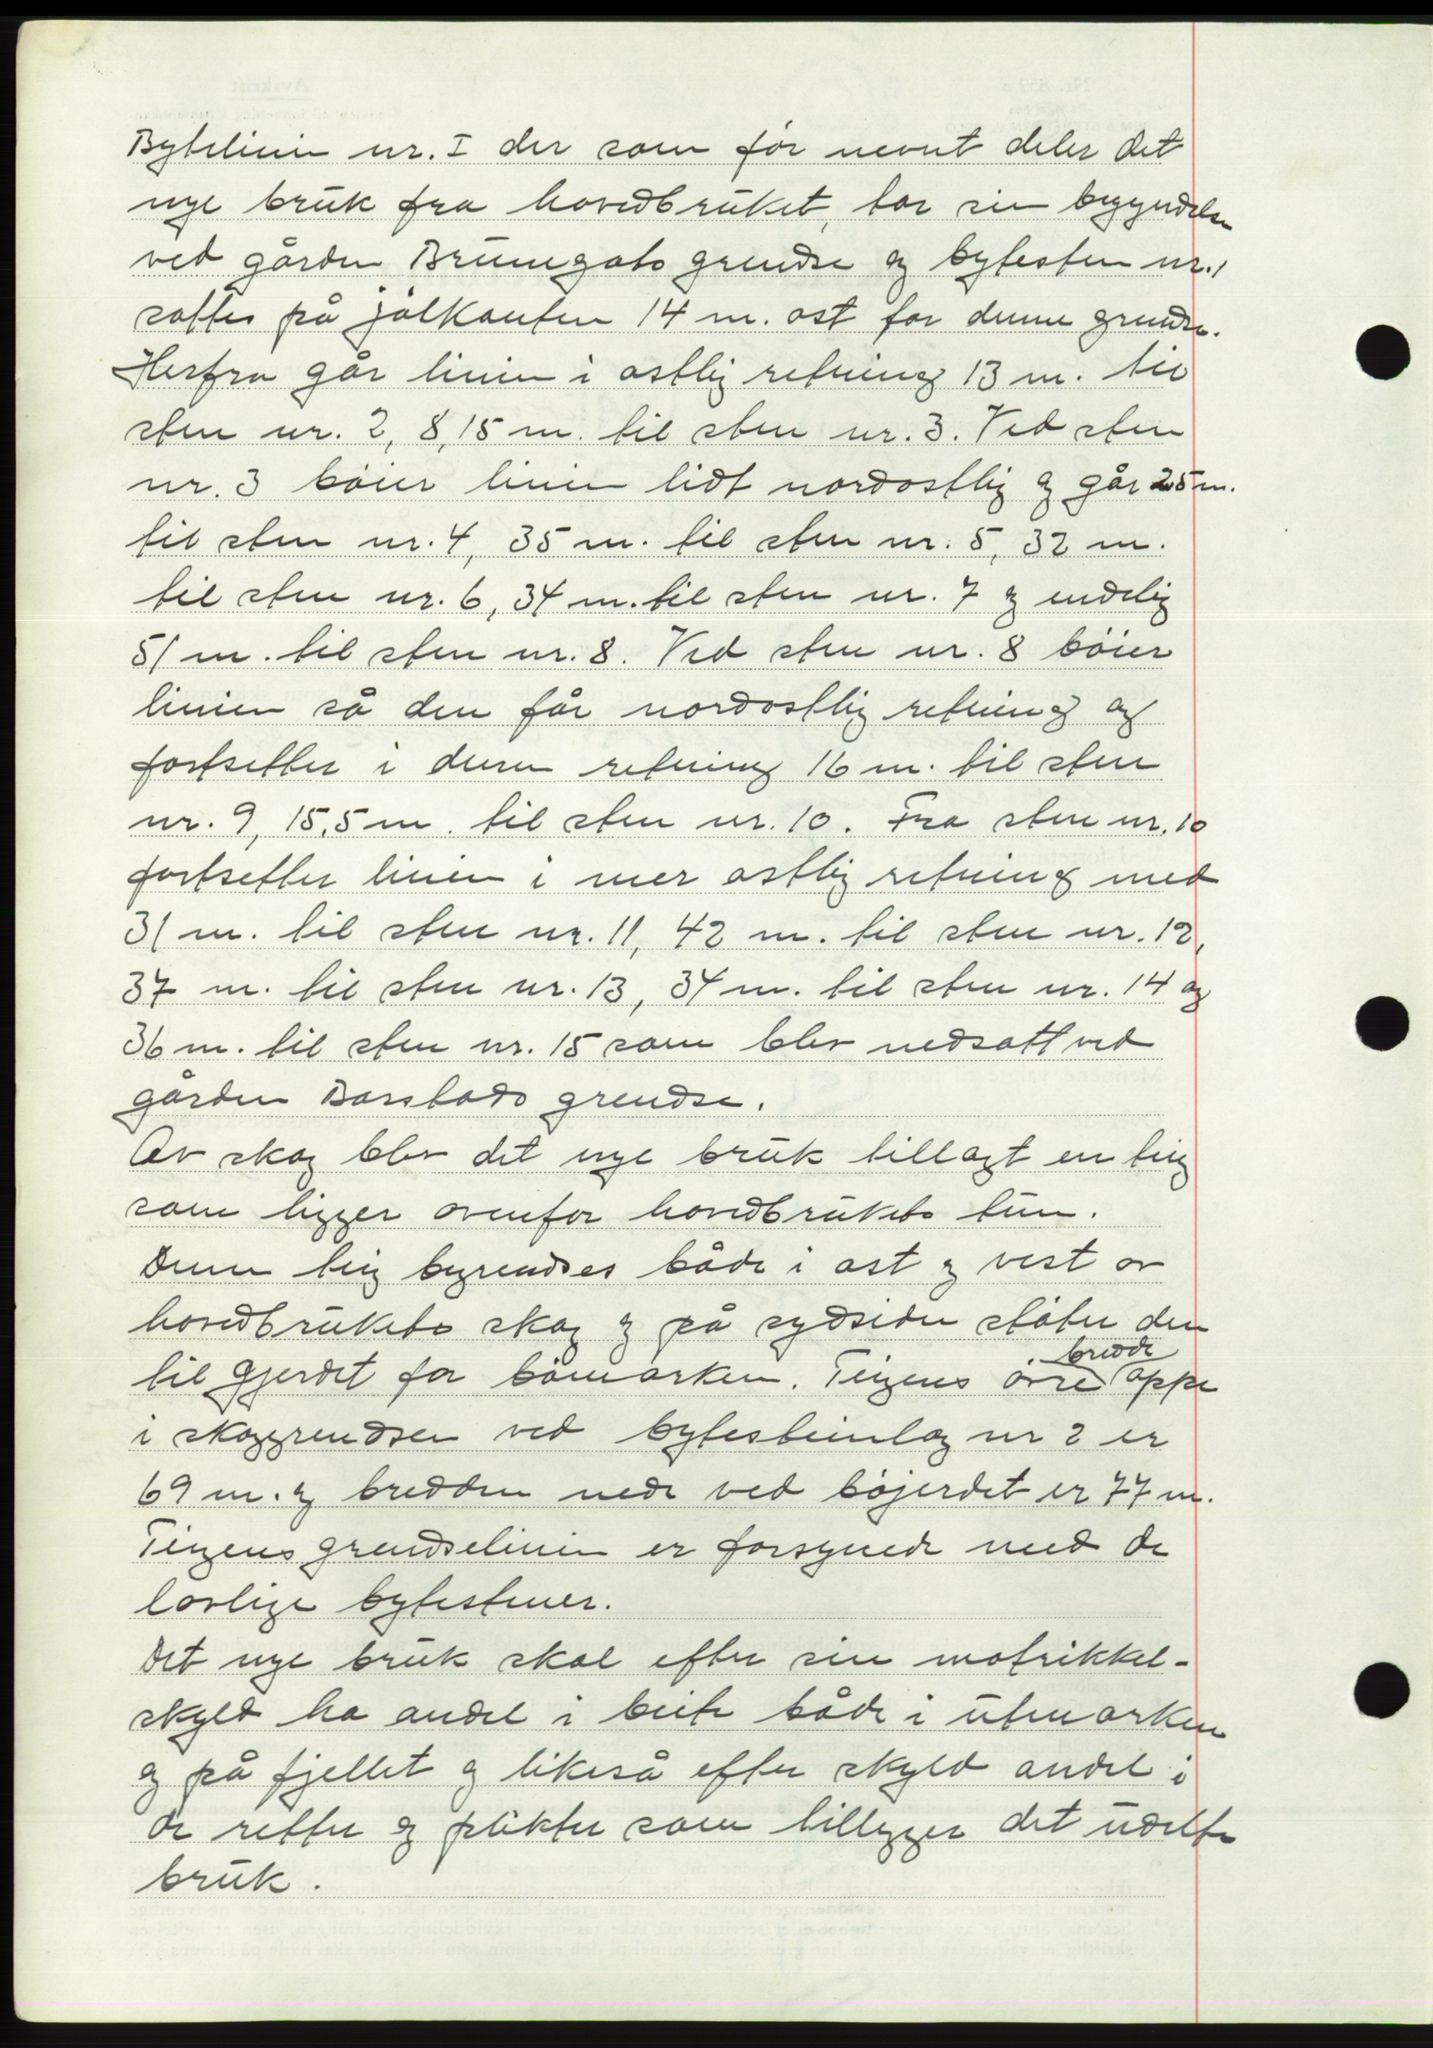 Bytelinien nr. I der som før nevnt deler det
nye bruk fra hovedbruket, tar sin begyndelse
ved gården Brunegots grendse og bytesten nr. 1
sattes på jålkanten 14 m. ost for denne grendse.
Herfra går linien i ostlig retning 13 m. til
sten nr. 2, 8,15 m. til sten nr. 3. Ved sten
nr. 3 bóier linien lidt nordostlig og går 25 m.
til sten nr. 4, 35 m. til sten nr. 5, 32 m.
til sten nr. 6, 34 m. til sten nr. 7 og endelig
51 m. til sten nr. 8. Ved sten nr. 8 bóier
linien så den får nordostlig retning og
fortsetter i denne retning 16 m. til sten
nr. 9, 15,5 m. til sten nr. 10. Fra sten nr. 10
fortsetter linien i mer ostlig retning med
31 m. til sten nr. 11, 42 m. til sten nr. 12,
37 m. til sten nr. 13, 34 m. til sten nr. 14 og
36 m. til sten nr. 15 som blev nedsatt ved
gården Barstads grendse.
Av skog blev det nye bruk tillagt en teig
som ligger ovenfor hovedbrukets tun.
Denne teig begrendses både i ost og vest av
hovedbrukets skog og på sydsiden støter den
til gjerdet for bömarken. Teigens övre bredde oppe
i skoggrendsen ved bytesteinlag nr 2 er
69 m. og bredden nede ved böjerdet er 77 m.
Teigens grendselinier er forsynede med de
lovlige bytestener.
Det nye bruk skal efter sin matrikkel-
skyld ha andel i beite både i utmarken
og på fjellet og likeså efter skyld andel i
de retter og plikter som tillegger det udelte
bruk.